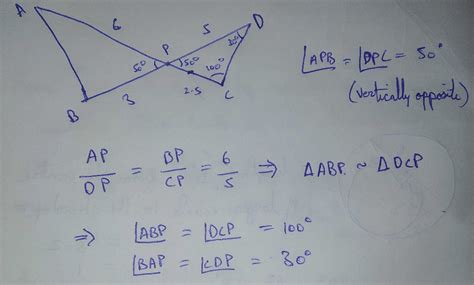 A
6
5
D
P
50°
50°
100°
30°
B
3
2.5
C
∠APB = ∠DPC = 50°
(vertically opposite)
AP/DP = BP/CP = 6/5 ⇒ △ABP ~ △DCP
⇒ ∠ABP = ∠DCP = 100°
∠BAP = ∠CDP = 30°